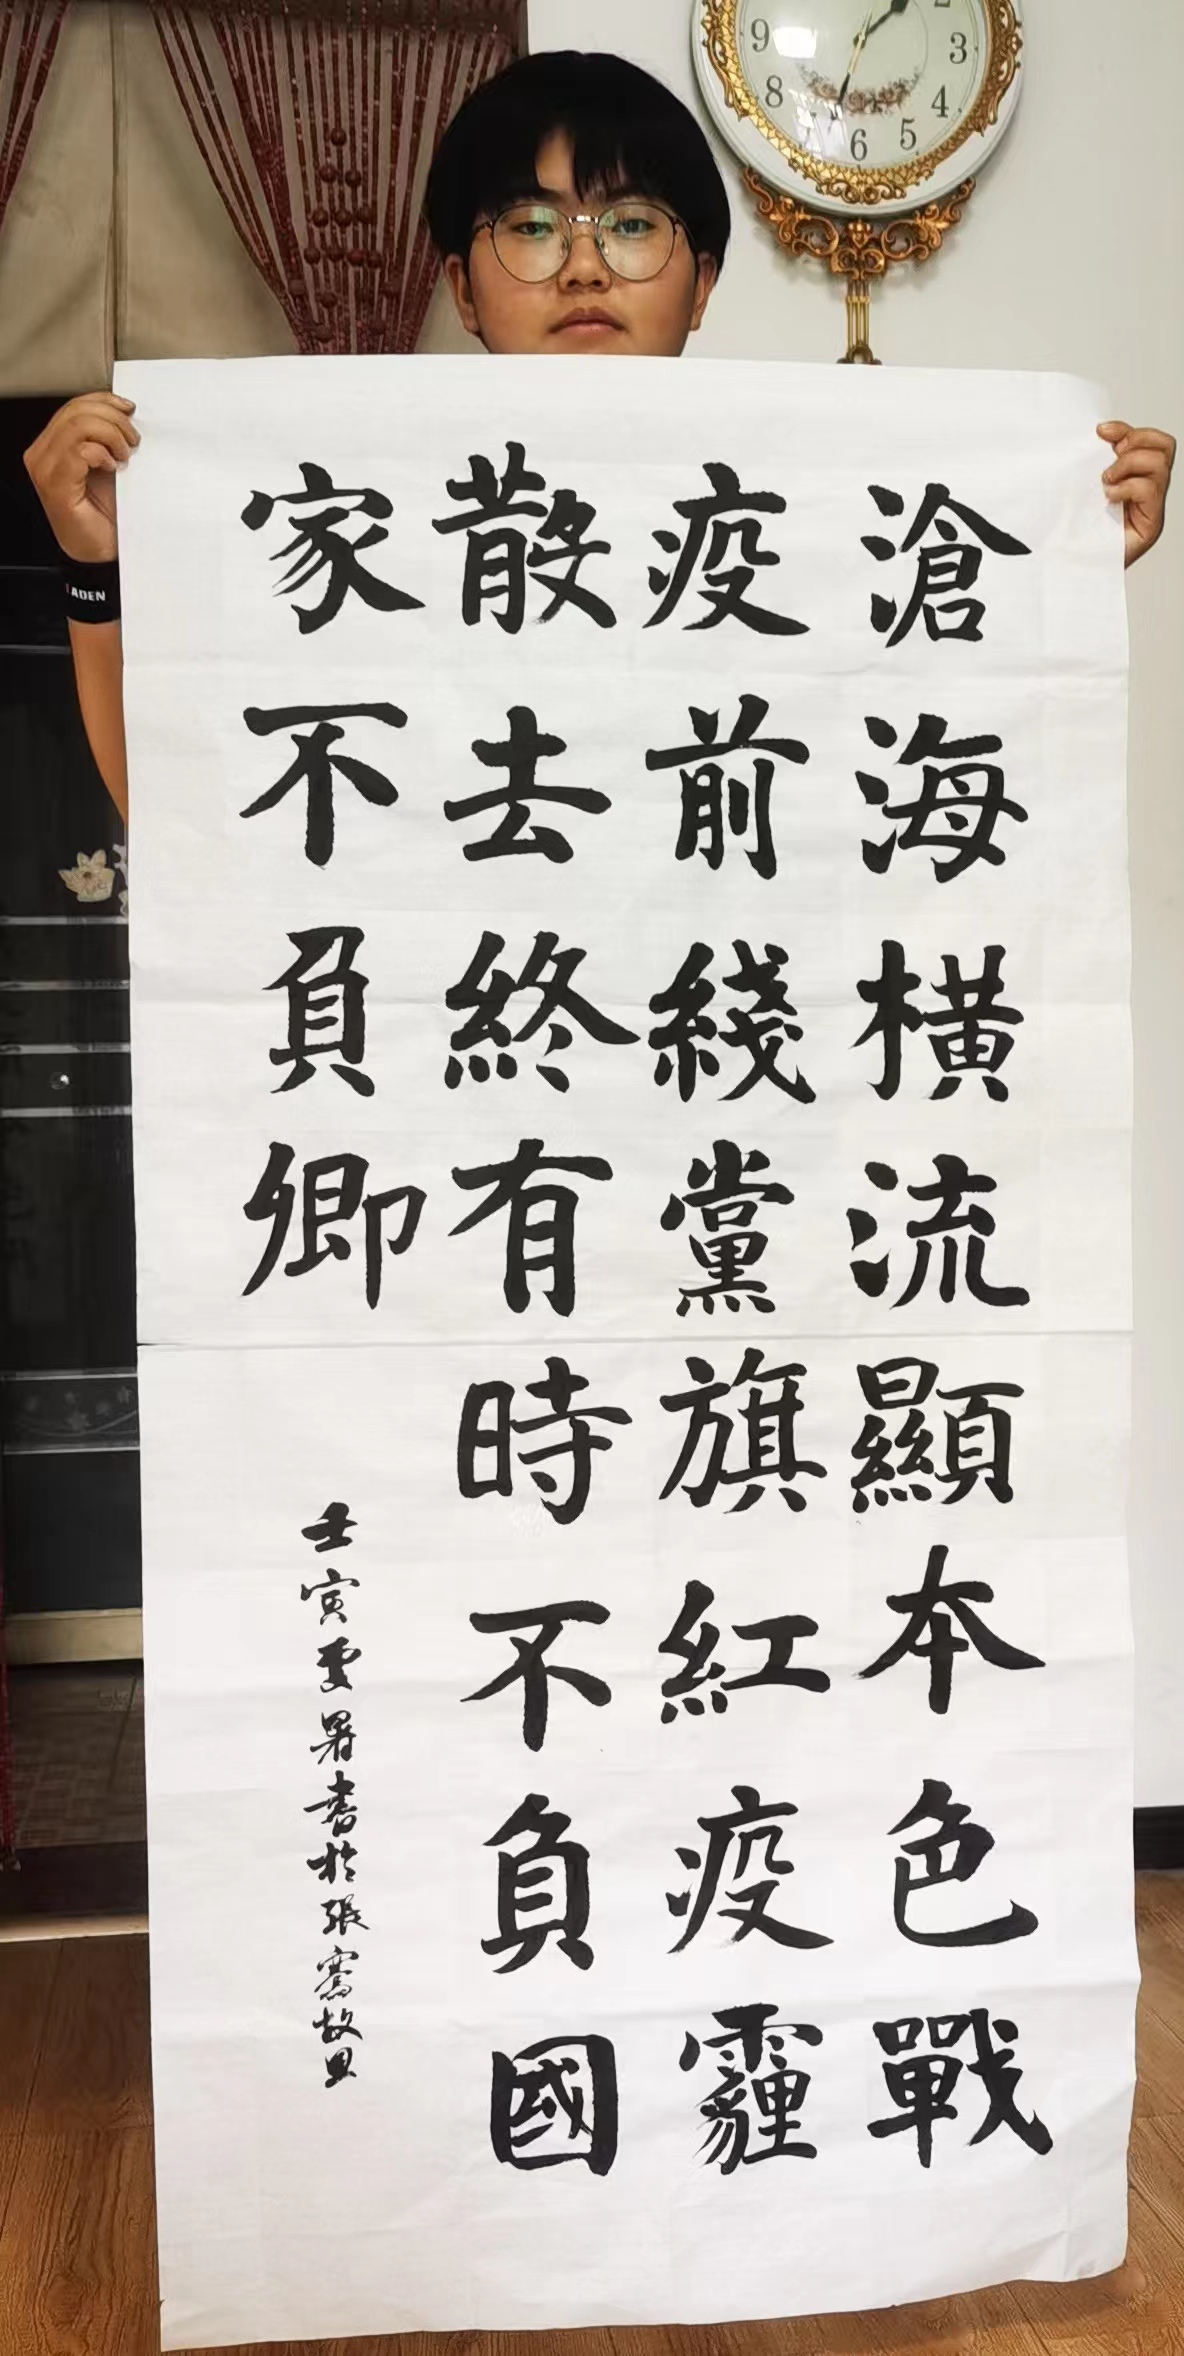 滄海橫流顯本色戰
疫前綫黨旗紅疫霾
散去終有時不負國
家不負卿
壬寅夏暑書於張騫故里
ADEN
9
8
6
5
4
3
2